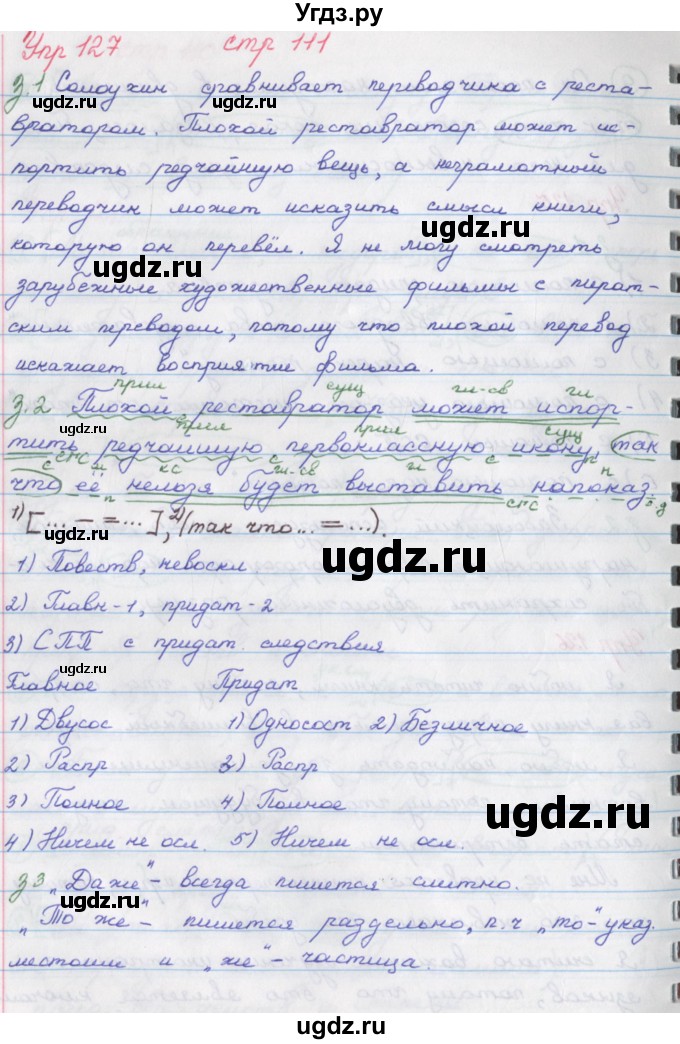 Угдз.ру
Упр 127 стр 111
з.1 Солоухин сравнивает переводчика с реста-
вратором. Плохой реставратор может ис-
портить редчайшую вещь, а неграмотный
переводчик может исказить смысл книги,
которую он перевёл. Я не могу смотреть
зарубежные художественные фильмы с пират-
ским переводом, потому что плохой перевод
искажает восприятие фильма.
прил сущ гл-св гл
з.2 Плохой реставратор может испор-
прил прил сущ
тить редчайшую первоклассную икону, так
с СПС м кс с гл-св гл с п н
что её нельзя будет выставить напоказ
1) [... – =...], 2) (так что... =...).
1) Повеств, невоскл
2) Главн-1, придат-2
3) СПП с придат. следствия
Главное Придат
1) Двусос 1) Односост 2) Безличное
2) Распр 3) Распр
3) Полное 4) Полное
4) Ничем не осл. 5) Ничем не осл.
з3 „Даже“ – всегда пишется слитно.
„То же“ – пишется раздельно, п.ч „то“-указ.
местоим и „же“ – частица.
ugdz.ru
ugdz.ru
ugdz.ru
ugdz.ru
ugdz.ru
ugdz.ru
ugdz.ru
ugdz.ru
ugdz.ru
ugdz.ru
ugdz.ru
ugdz.ru
ugdz.ru
ugdz.ru